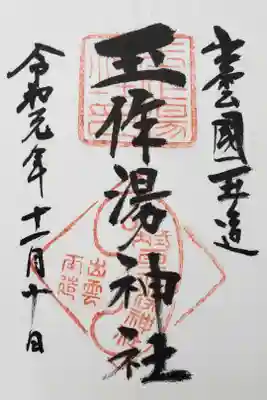 出雲國玉造
玉作湯神社
令和元年十一月十日
出雲